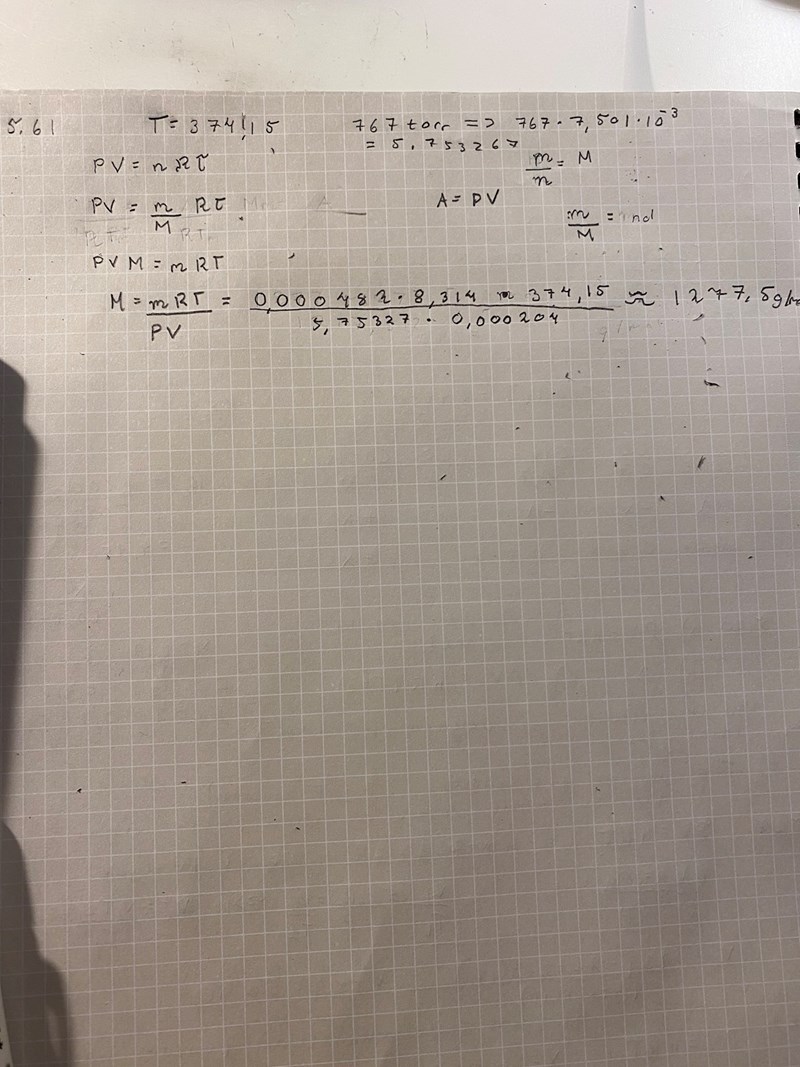 5.61 T = 374,15 767 torr => 767 · 7,501 · 10⁻³
= 5.753267
PV = nRT m/n = M
PV = m/M RT A = PV
m/M = nol
PVM = mRT
M = mRT/PV = 0,000482 · 8,314 · 374,15 / 5,75327 · 0,000204 ≈ 1277,5g/m